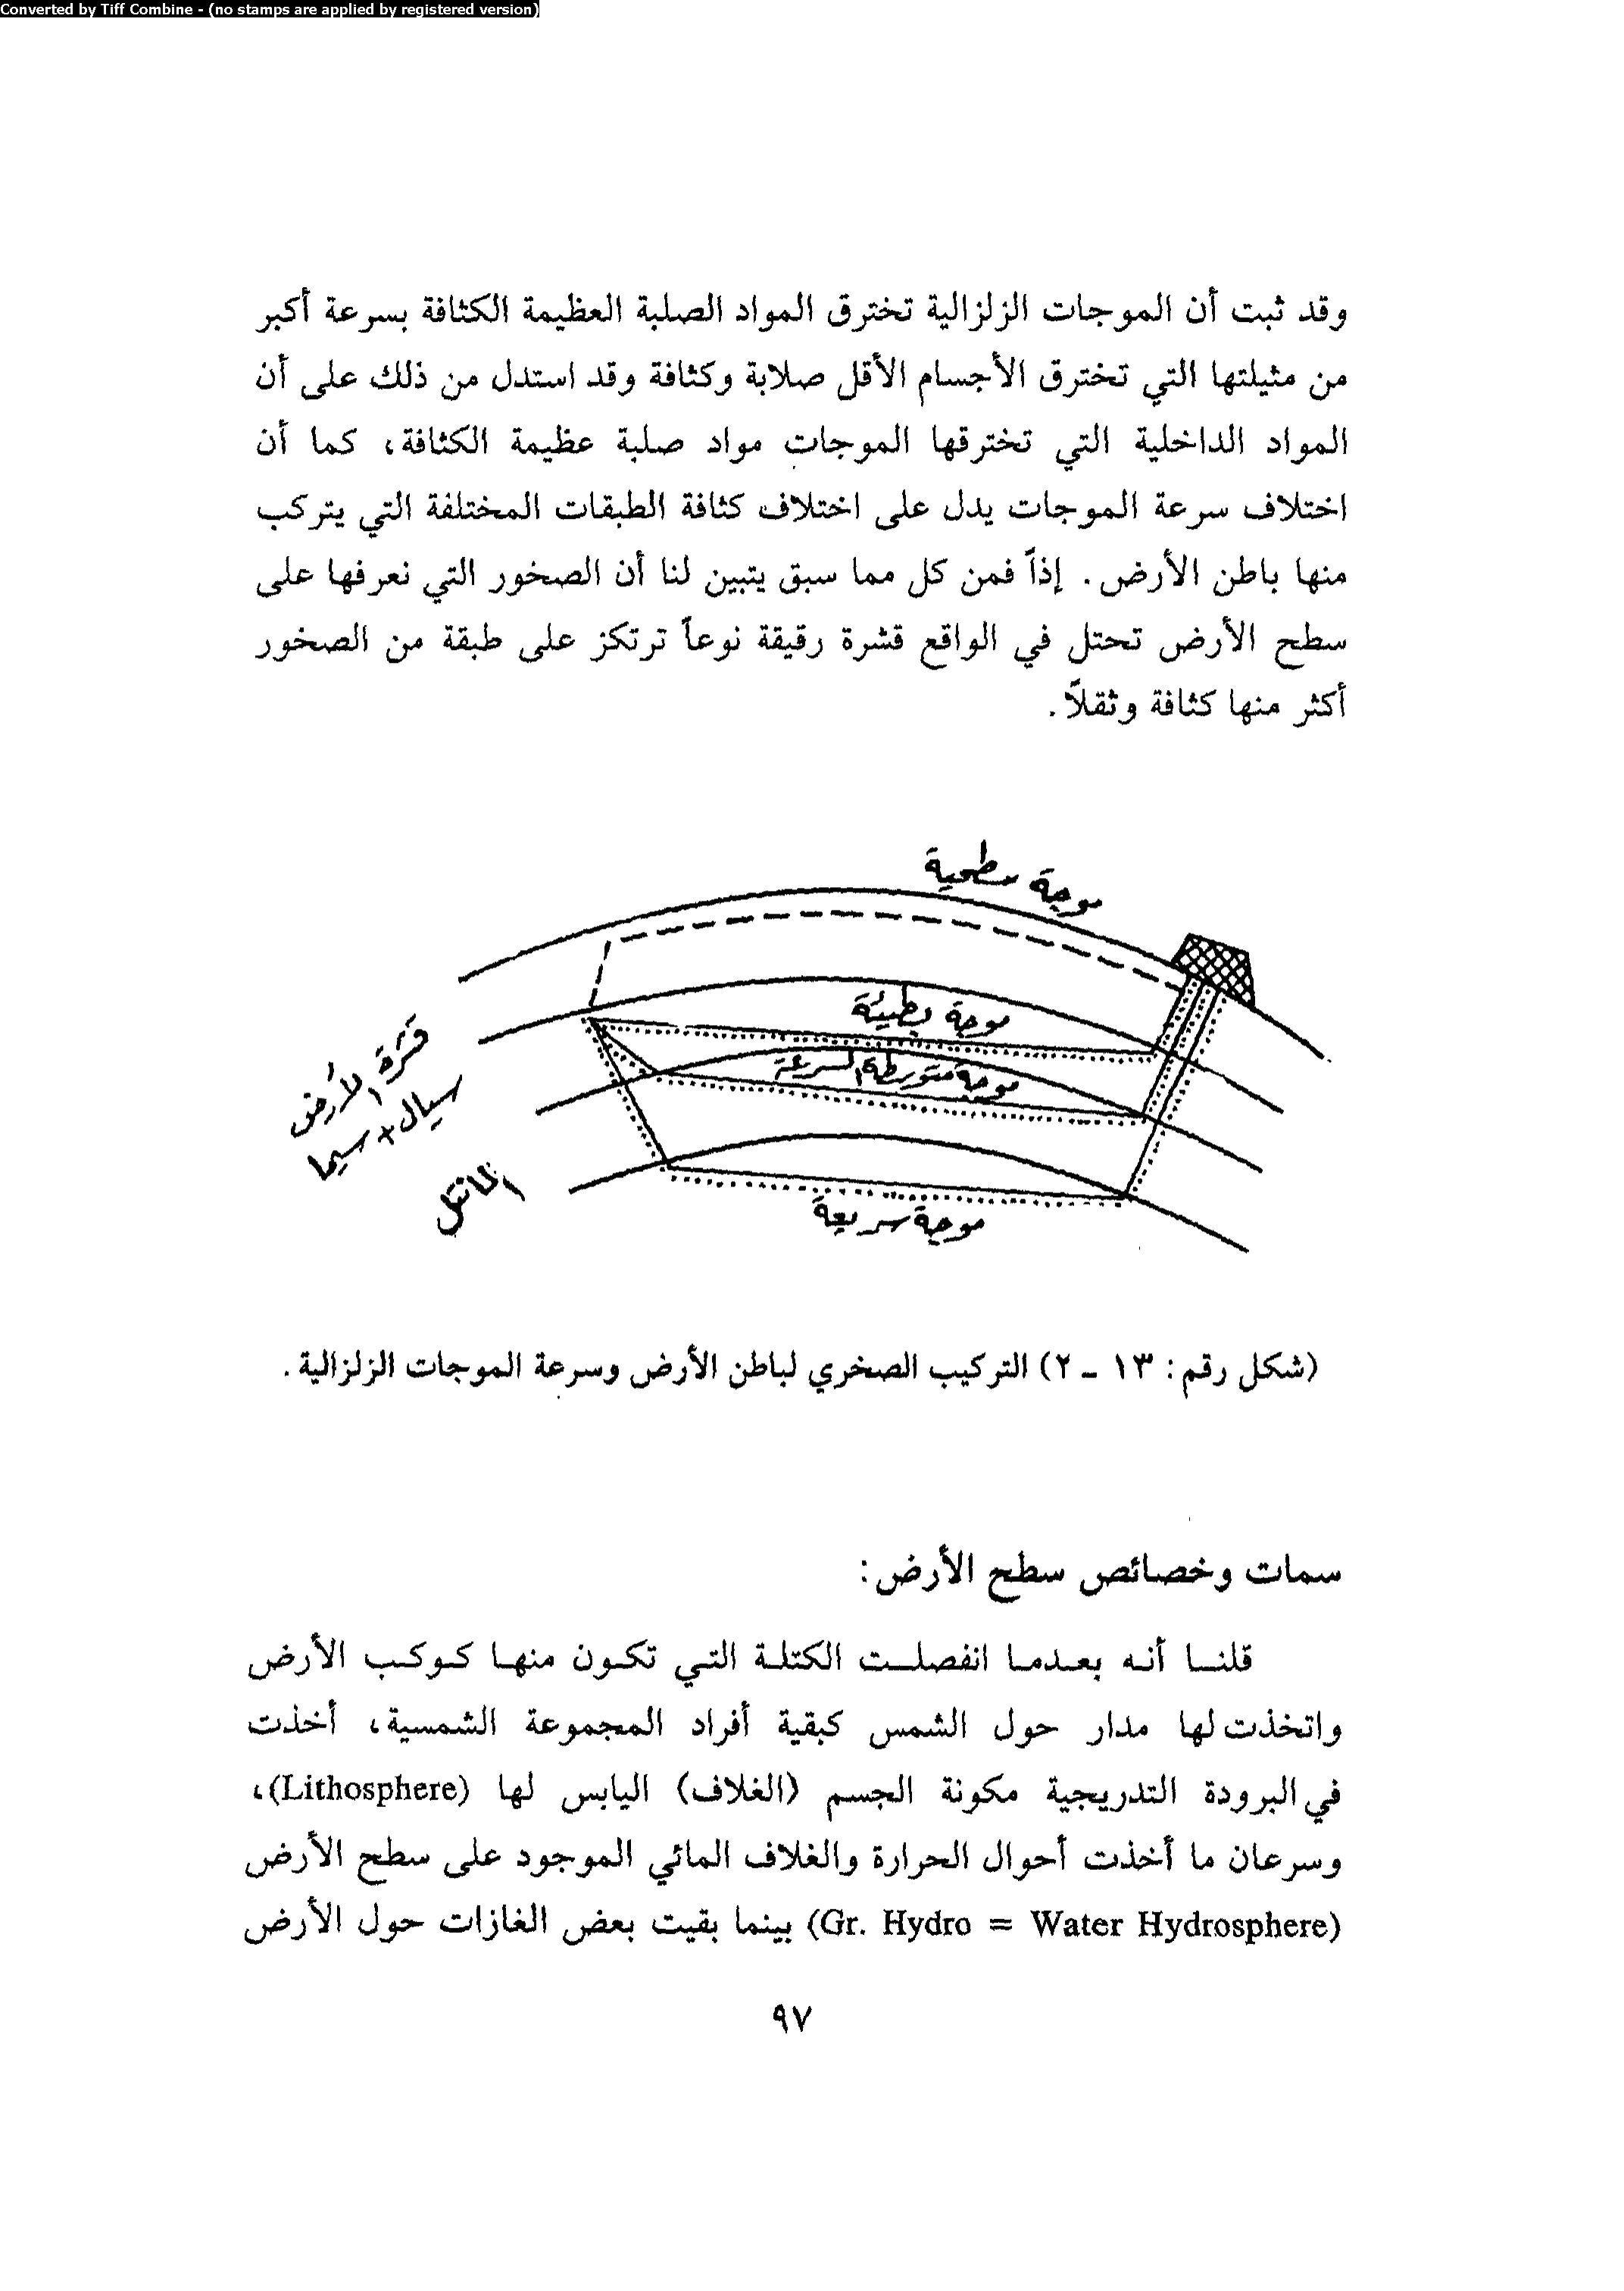 Converted by Tiff Combine - (no stamps are applied by registered version)
وقد ثبت أن الموجات الزلزالية تخترق المواد الصلبة العظيمة الكثافة بسرعة أكبر
من مثيلتها التي تخترق الأجسام الأقل صلابة وكثافة وقد استدل من ذلك على أن
المواد الداخلية التي تخترقها الموجات مواد صلبة عظيمة الكثافة، كما أن
اختلاف سرعة الموجات يدل على اختلاف كثافة الطبقات المختلفة التي يتركب
منها باطن الأرض. إذاً فمن كل مما سبق يتبين لنا أن الصخور التي نعرفها على
سطح الأرض تحتل في الواقع قشرة رقيقة نوعاً ترتكز على طبقة من الصخور
أكثر منها كثافة وثقلاً.
موجة سطحية
موجة بطيئة
موجة متوسطة السرعة
موجة سريعة
قشرة الأرض
سيال + سيما
المانتل
(شكل رقم: ١٣ - ٢) التركيب الصخري لباطن الأرض وسرعة الموجات الزلزالية.
سمات وخصائص سطح الأرض:
قلنا أنه بعدما انفصلت الكتلة التي تكون منها كوكب الأرض
واتخذت لها مدار حول الشمس كبقية أفراد المجموعة الشمسية، أخذت
في البرودة التدريجية مكونة الجسم (الغلاف) اليابس لها (Lithosphere)،
وسرعان ما أخذت أحوال الحرارة والغلاف المائي الموجود على سطح الأرض
(Gr. Hydro = Water Hydrosphere) بينما بقيت بعض الغازات حول الأرض
٩٧